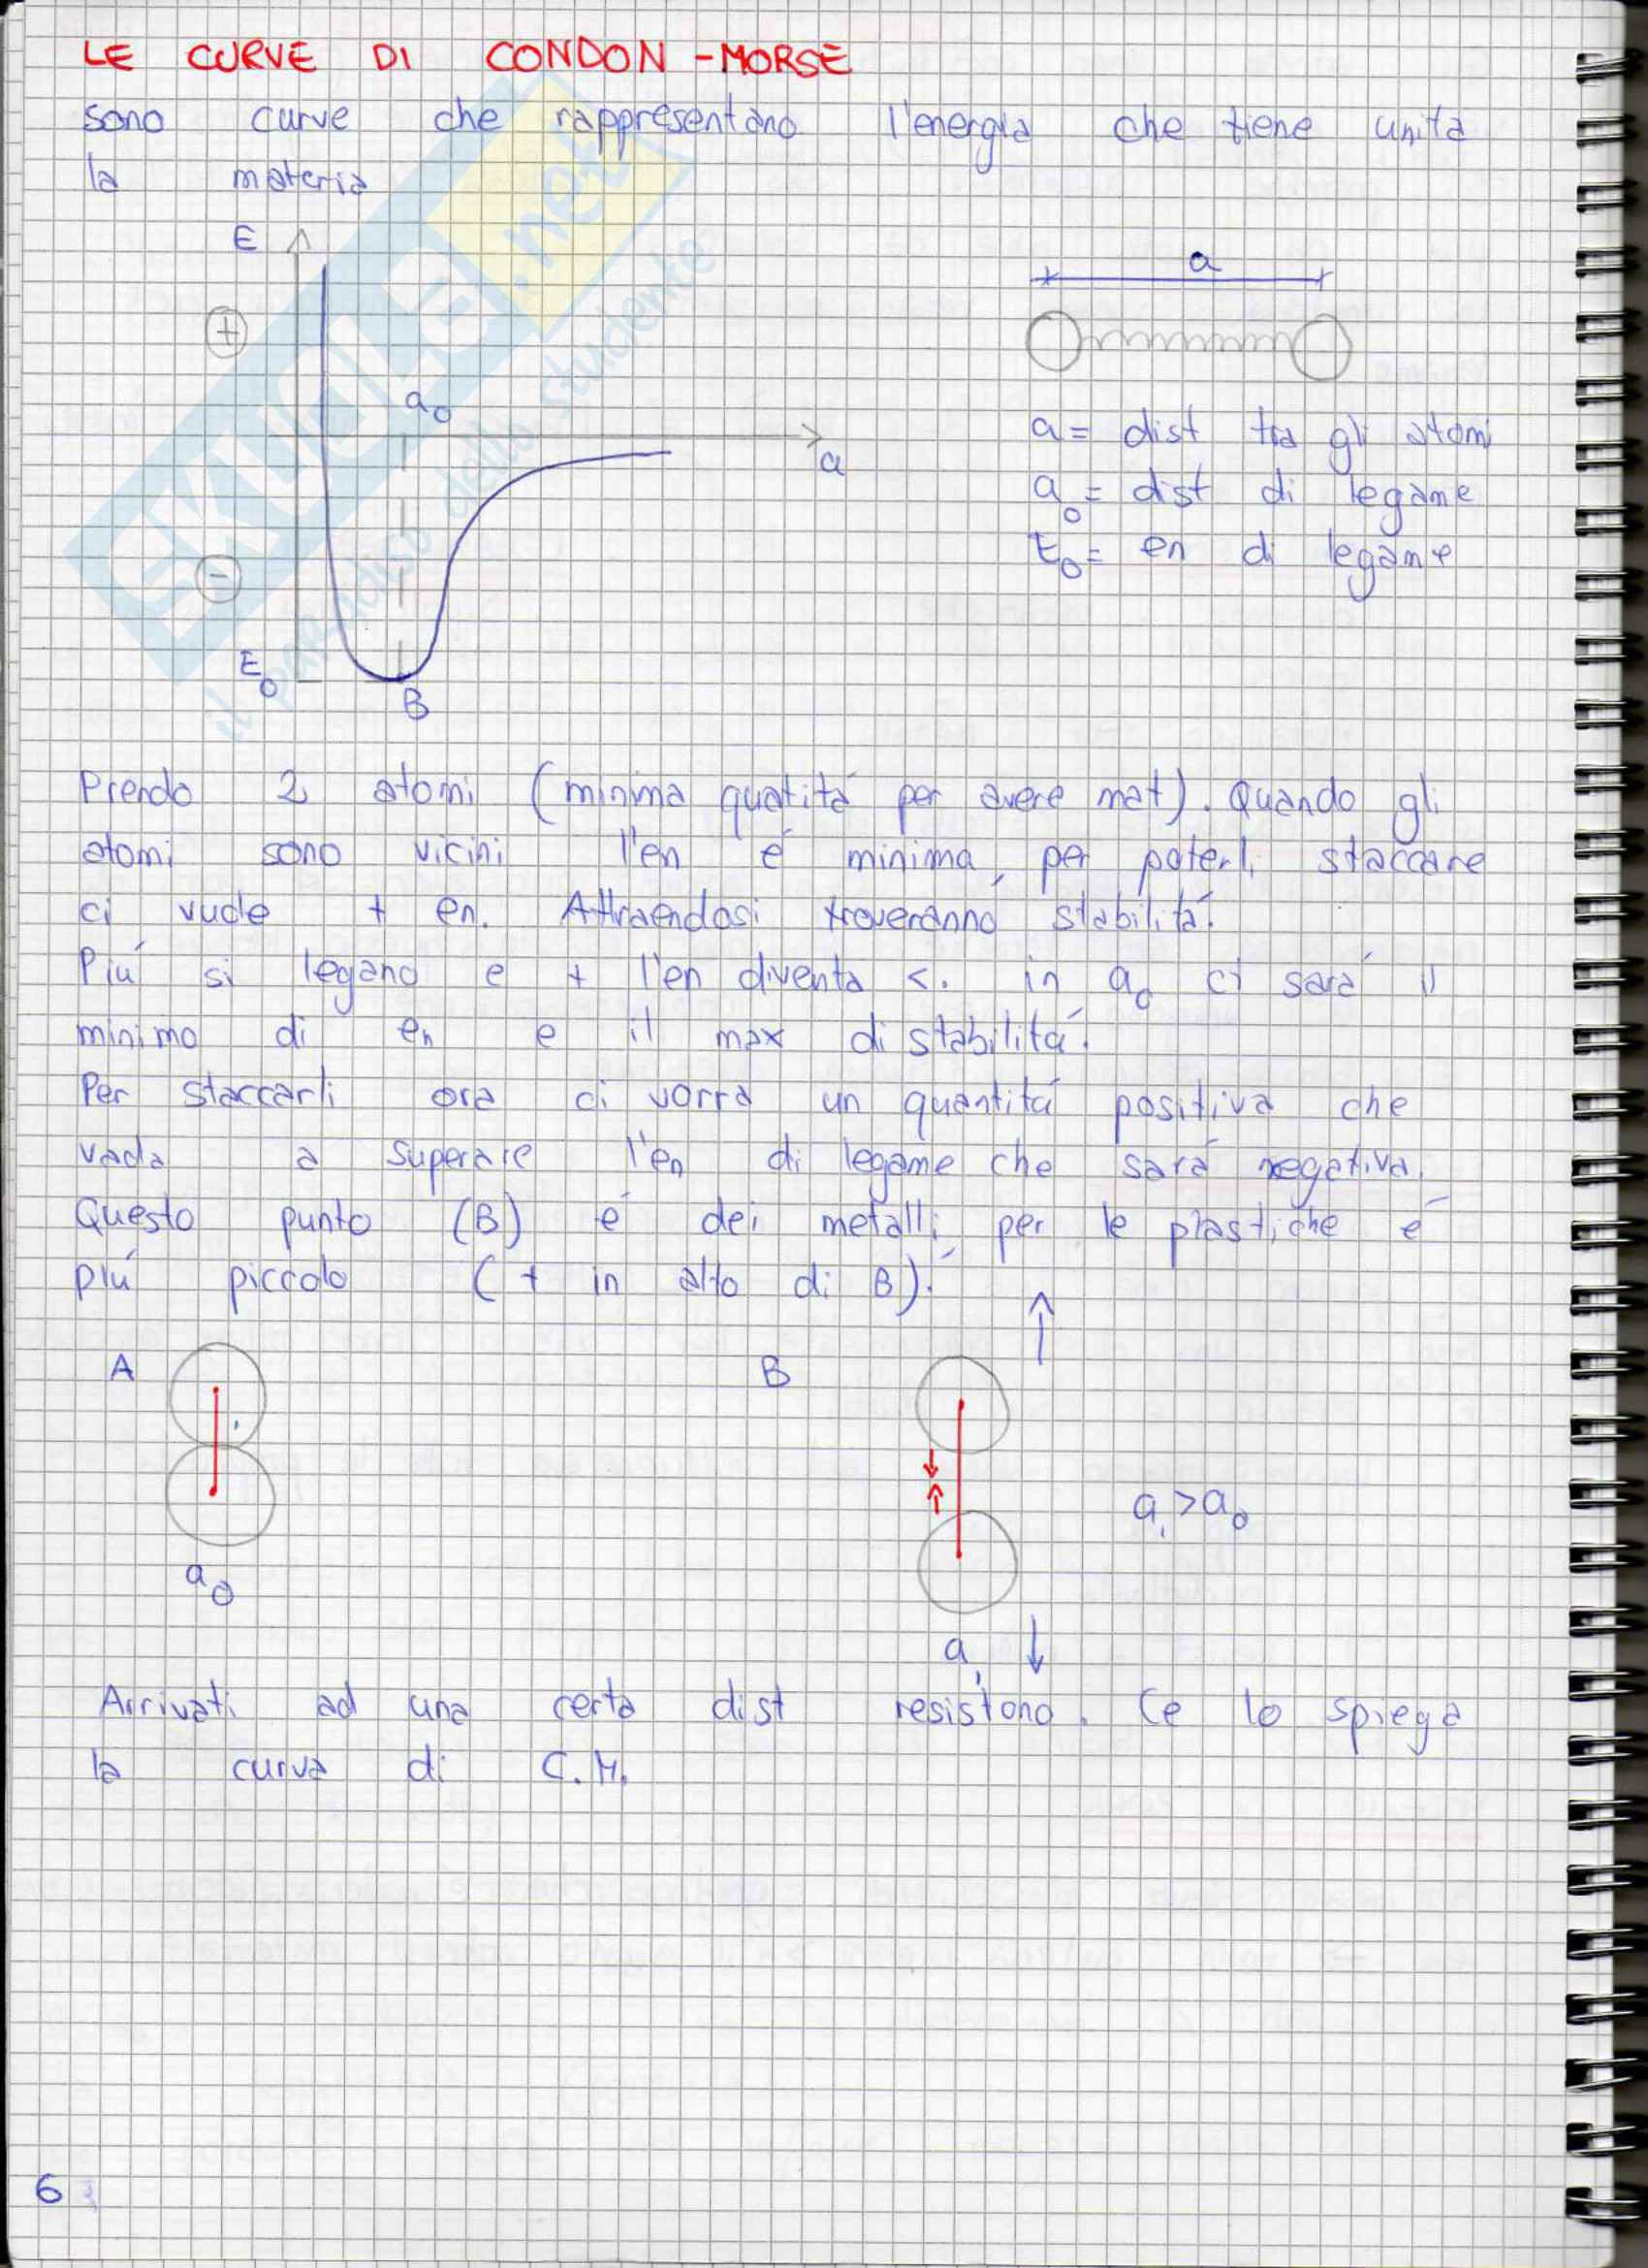 LE CURVE DI CONDON-MORSE
sono curve che rappresentano l'energia che tiene unita
la materia
E
a
+
a0
a
a= dist tra gli atomi
a0= dist di legame
E0= en di legame
-
E0
B
SKUOLA.net
il paradiso dello studente
Prendo 2 atomi (minima quatità per avere mat). Quando gli
atomi sono vicini l'en é minima, per poterli staccare
ci vude + en. Attraendosi troveranno stabilitá.
Piú si legano e + l'en diventa <. in a0 ci sará il
minimo di en e il max di stabilitá.
Per staccarli ora ci vorrá un quantitá positiva che
vada a superare l'en di legame che sará negativa.
Questo punto (B) é dei metalli, per le plastiche é
piú piccolo (+ in alto di B).
A
B
a1>a0
a0
a1
Arrivati ad una certa dist resistono. Ce lo spiega
la curva di C.M.
6